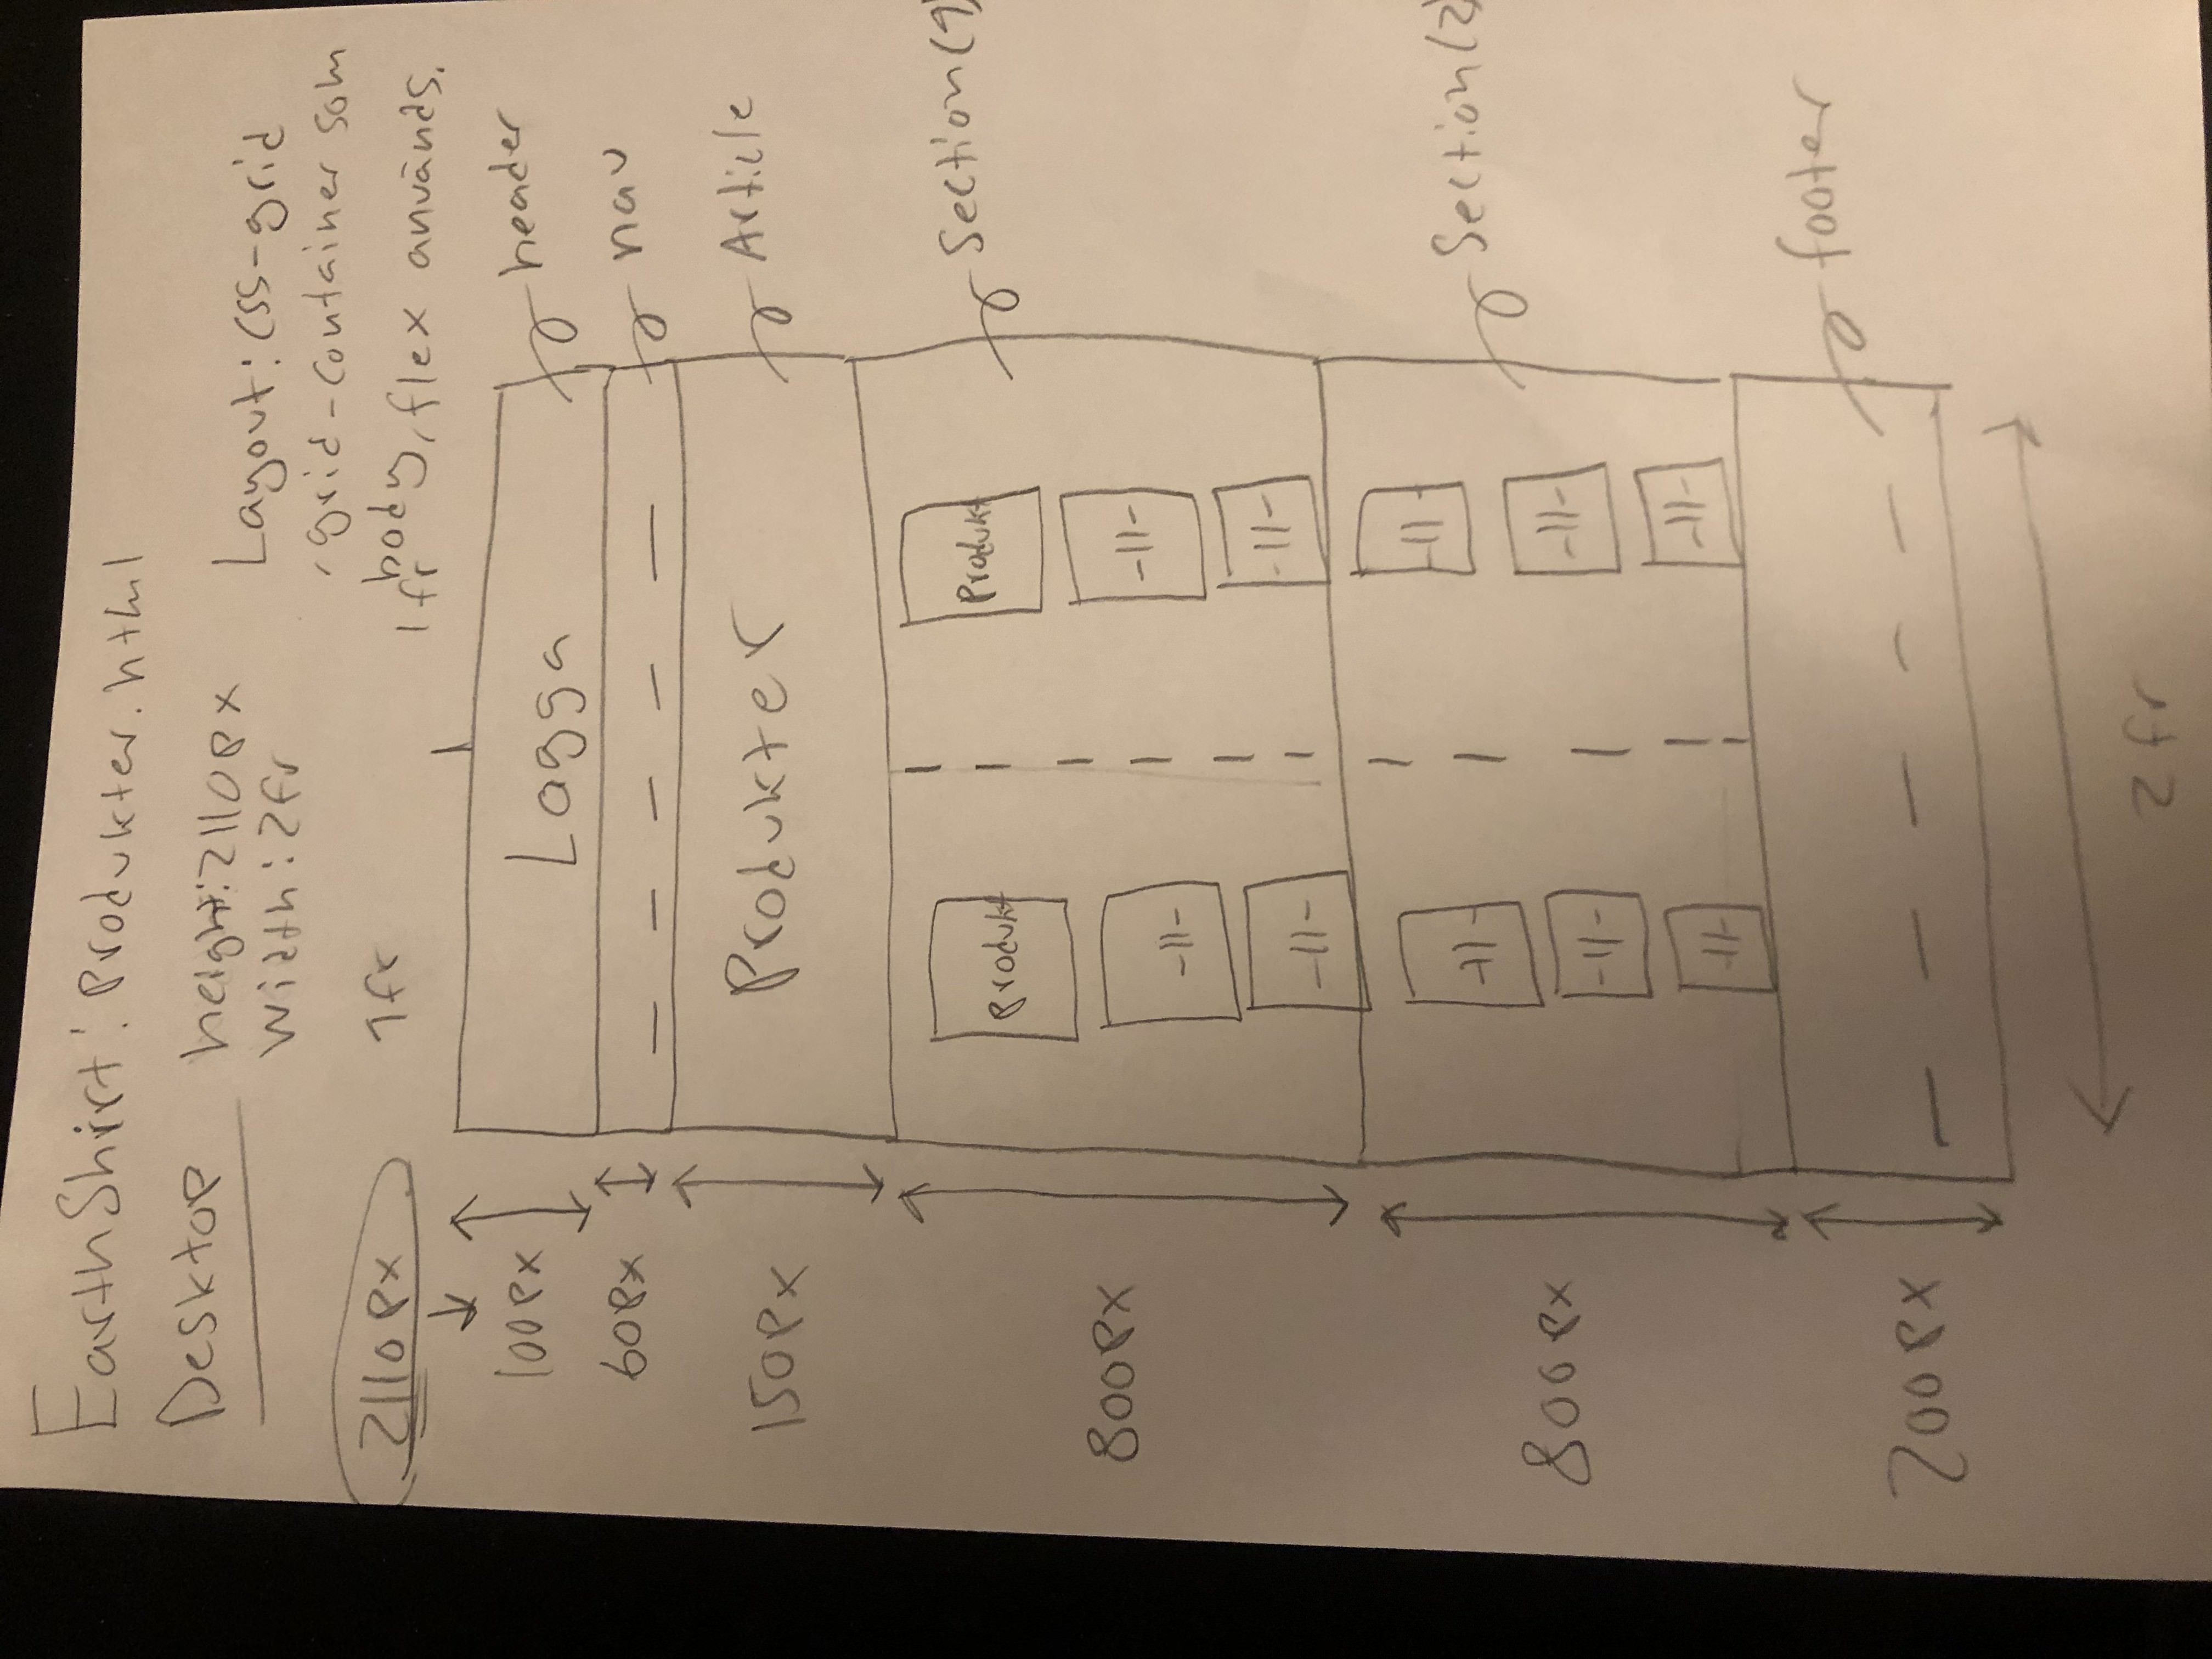 EarthShirt: Produkter.html
Desktop
height: 2110px
width: 2fr
Layout: css-grid
, grid-container som
body, flex används.
2110px
1fr
1fr
100px
Logga
header
60px
nav
150px
Produkter
Article
800px
Produkt
Produkt
Section(1)
-||-
-||-
-||-
-||-
800px
-||-
-||-
Section(2)
-||-
-||-
-||-
-||-
200px
footer
2fr